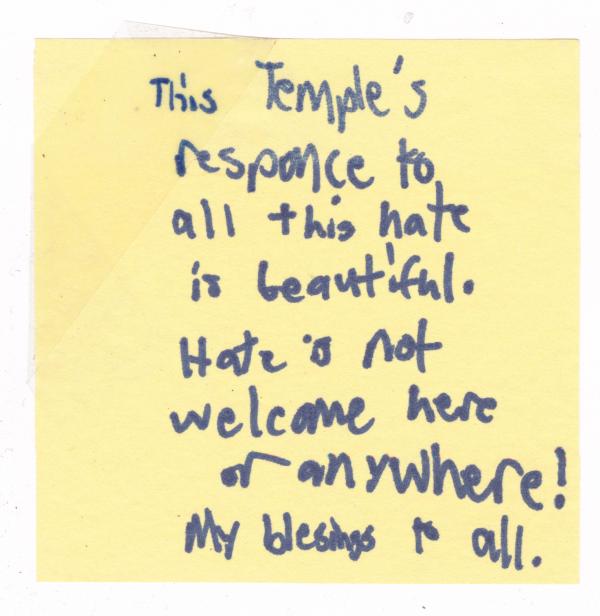 This Temple's
responce to
all this hate
is beautiful.
Hate is not
welcome here
or anywhere!
My blesings to all.